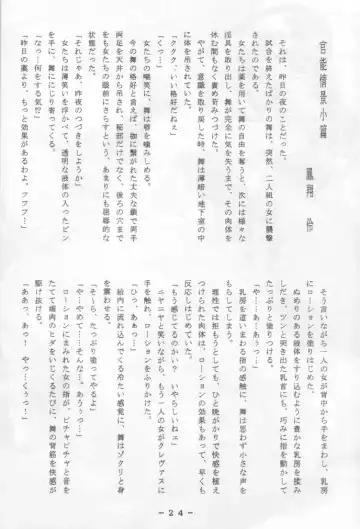 官能情景小篇
鳳翔 伶
それは、昨日の夜のことだった。
試合を終えたばかりの舞は、突然、二人組の女に襲撃
されたのである。
女たちは薬を用いて舞の自由を奪うと、次には様々な
淫具を取り出し、舞が完全に気を失うまで、その肉体を
休む間もなく責め苛みつづけた。
やがて、意識を取り戻した時、舞は薄暗い地下室の中
に体を吊されていた。
「ククク、いい格好だねぇ」
「くっ…」
女たちの嘲笑に、舞は唇を噛みしめる。
今の舞の格好と言えば、枷に繋がれた丈夫な鎖で両手
両足を天井から吊され、秘部だけでなく、後ろの穴まで
をも女たちの眼前にさらすという、あまりにも屈辱的な
状態だった。
「それじゃあ、昨夜のつづきをしようか」
女たちは薄笑いを浮かべて、透明な液体の入ったビン
を手に、舞ににじり寄ってくる。
「なっ…何をする気!?」
「昨日の薬より、もっと効果があるわよ。フフフ…」
そう言いながら一人の女が背中から手をまわし、乳房
にローションを塗りはじめた。
ぬめりのある液体をすり込むように豊かな乳房を揉み
しだき、ツンと突き出た乳首にも、巧みに指を動かして
たっぷりと塗りつける。
「や…あ…あぅっ…」
乳房を這いまわる指の感触に、舞は思わず小さな声を
もらしてしまう。
理性では拒もうとしても、ひと晩がかりで快感を植え
つけられた肉体は、ローションの効果もあって、早くも
反応しはじめていた。
「もう感じてるのかい？ いやらしいねェ」
ニヤニヤと笑いながら、もう一人の女がクレヴァスに
手を触れ、ローションをふりかけた。
「ひっ、あぁっ…」
胎内に流れ込んでくる冷たい感覚に、舞はゾクリと身
を震わせる。
「そ〜ら、たっぷり塗ってやるよ」
「や…やめて……そんな…、あうぅっ…」
ローションにまみれた女の指が、ピチャピチャと音を
たてて媚肉のヒダをいじくるたびに、舞の背筋を快感が
駆け抜ける。
「ああっ、あっ！ やっ…くぅっ！」
－２４－